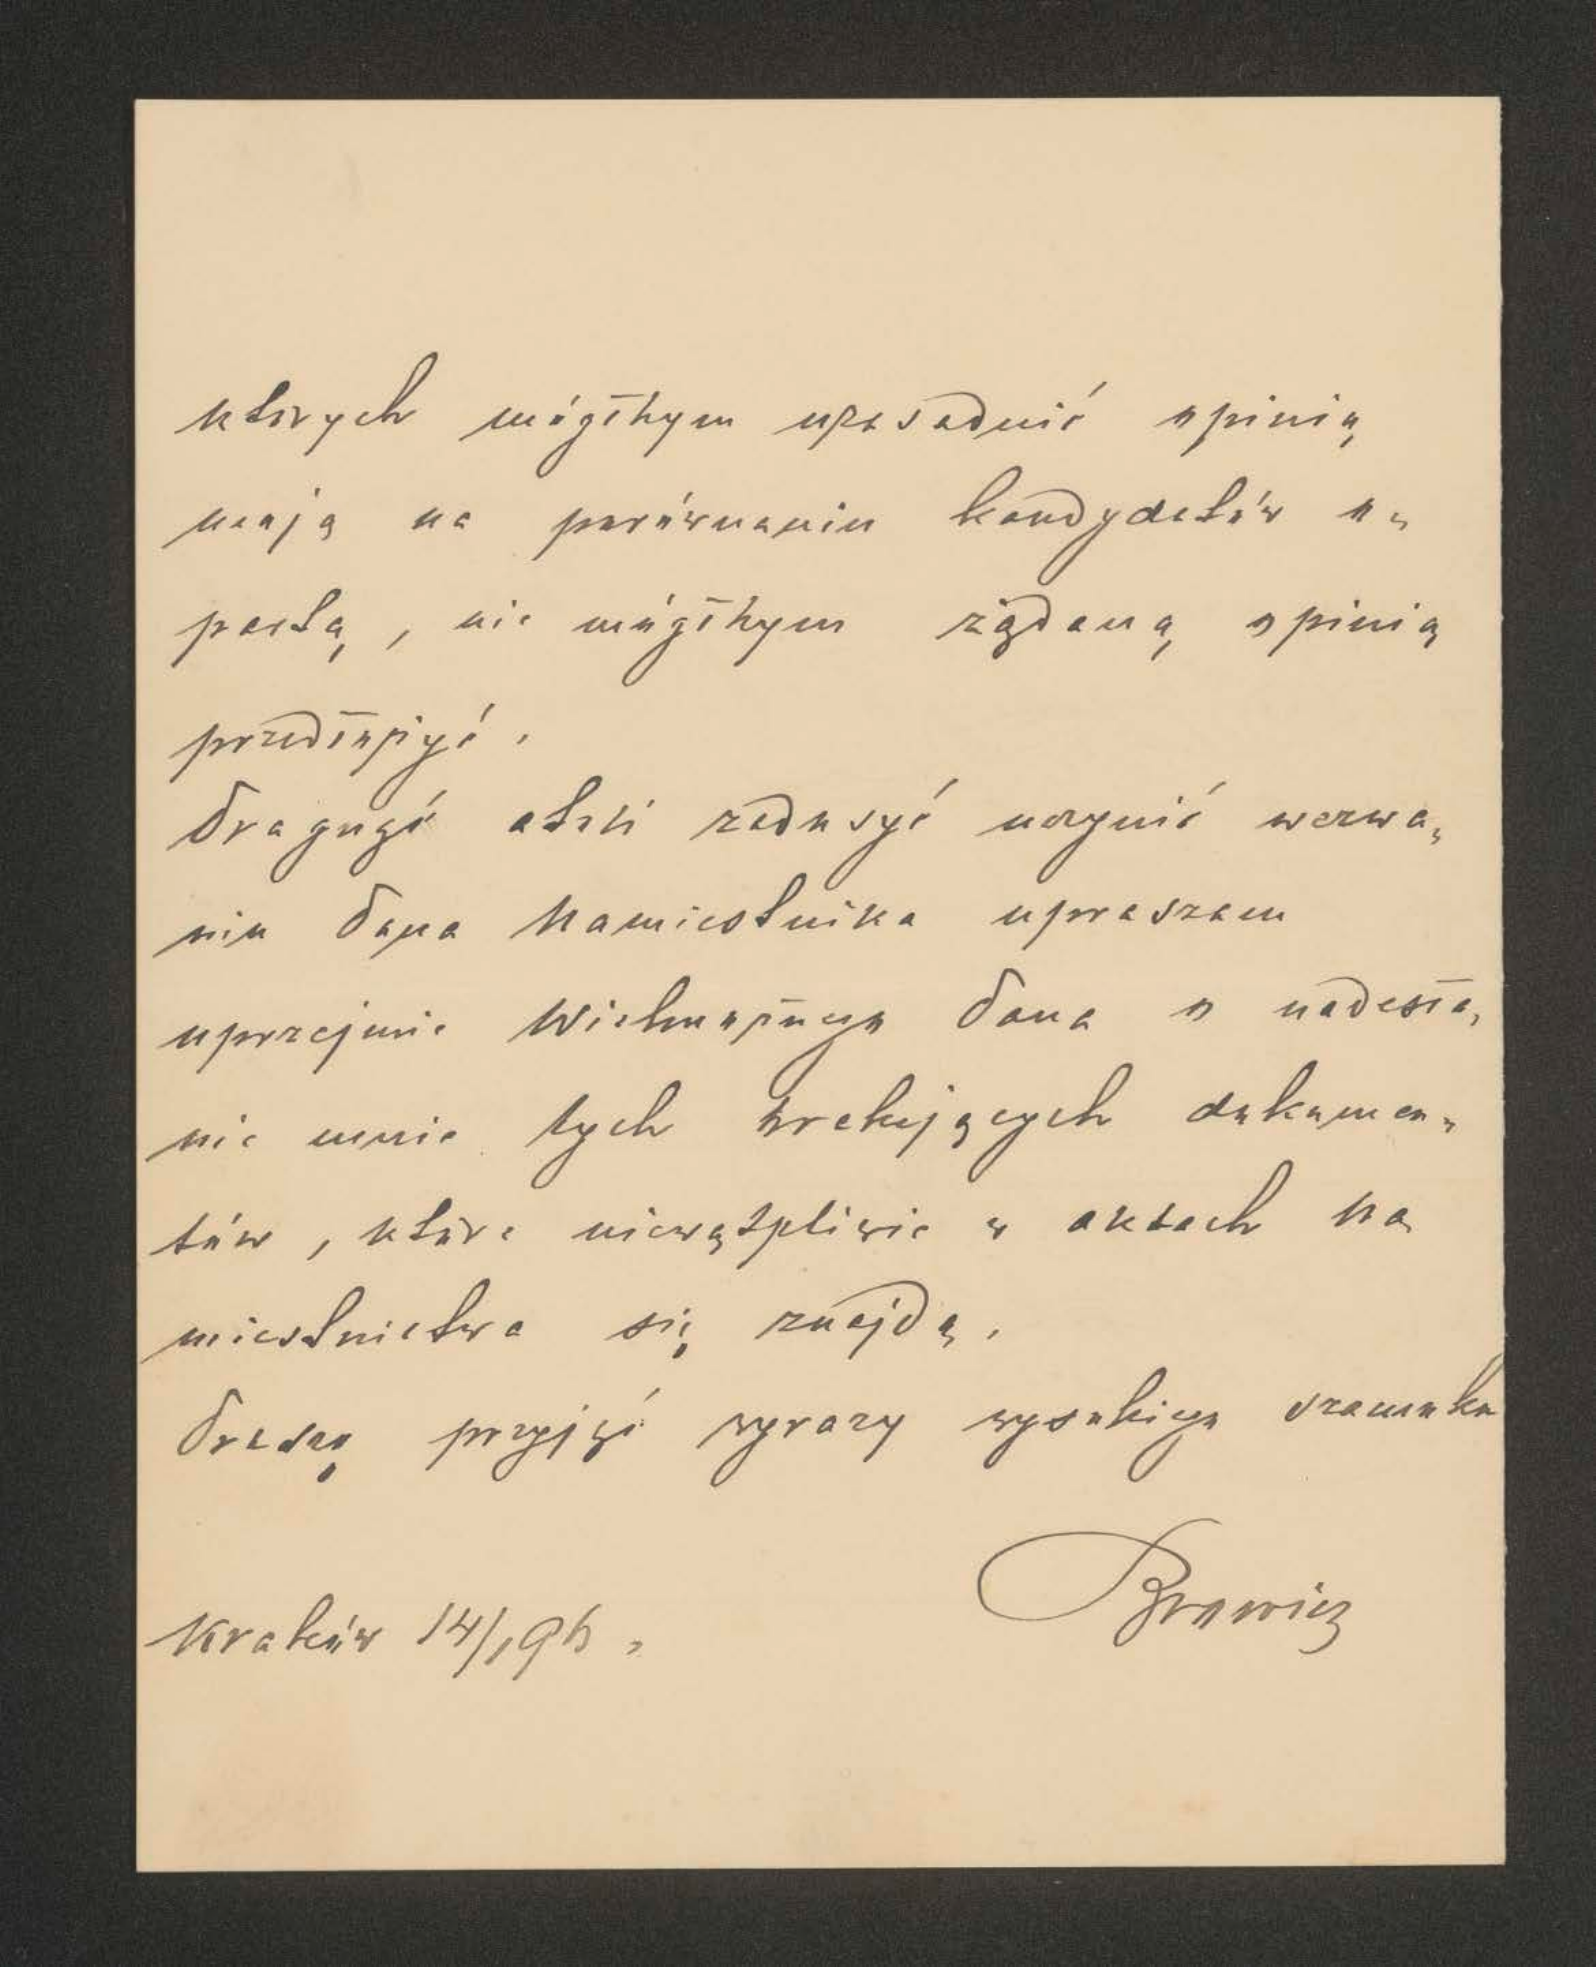 których mógłbym uzasadnić opinią
moją na porównaniu kandydatów o-
partą, nie mógłbym żądaną opinią
przedłożyć.
Pragnąć atoli zadosyć uczynić wezwa-
niu Pana Namiestnika upraszam
uprzejmie Wielmożnego Pana o nadesła-
nie mnie tych brakujących dokumen-
tów, które niewątpliwie w aktach Na
miestnictwa się znajdą.
Proszę przyjąć wyrazy wysokiego szacunku
Browicz
Kraków 14/1 96.